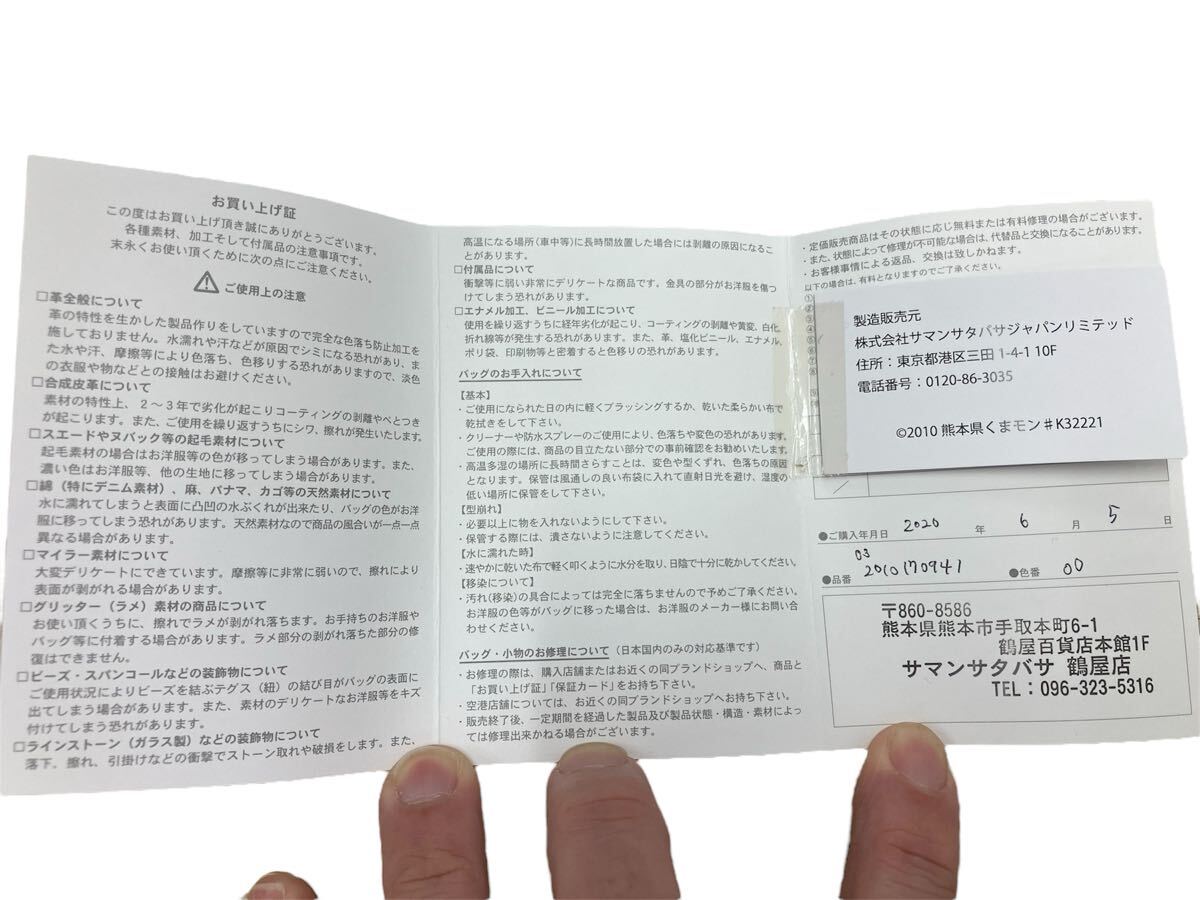 お買い上げ証
この度はお買い上げ頂き誠にありがとうございます。
各種素材、加工そして付属品の注意事項です。
末永くお使い頂くために次の点にご注意ください。
ご使用上の注意
□革全般について
革の特性を生かした製品作りをしていますので完全な色落ち防止加工を
施しておりません。水濡れや汗などが原因でシミになる恐れがあり、ま
た水や汗、摩擦等により色落ち、色移りする恐れがありますので、淡色
の衣服や物などとの接触はお避けください。
□合成皮革について
素材の特性上、2〜3年で劣化が起こりコーティングの剥離やべとつき
が起こります。また、ご使用を繰り返すうちにシワ、擦れが発生いたします。
□スエードやヌバック等の起毛素材について
起毛素材の場合はお洋服等の色が移ってしまう場合があります。また、
濃い色はお洋服等、他の生地に移ってしまう場合があります。
□綿(特にデニム素材)、麻、パナマ、カゴ等の天然素材について
水に濡れてしまうと表面に凸凹の水ぶくれが出来たり、バッグの色がお洋
服に移ってしまう恐れがあります。天然素材なので商品の風合いが一点一点
異なる場合があります。
□マイラー素材について
大変デリケートにできています。摩擦等に非常に弱いので、擦れにより
表面が剥がれる場合があります。
□グリッター(ラメ)素材の商品について
お使い頂くうちに、擦れでラメが剥がれ落ちます。お手持ちのお洋服や
バッグ等に付着する場合があります。ラメ部分の剥がれ落ちた部分の修
復はできません。
□ビーズ・スパンコールなどの装飾物について
ご使用状況によりビーズを結ぶテグス(紐)の結び目がバッグの表面に
出てしまう場合があります。また、素材のデリケートなお洋服等をキズ
付けてしまう恐れがあります。
□ラインストーン(ガラス製)などの装飾物について
落下、擦れ、引掛けなどの衝撃でストーン取れや破損をします。また、
高温になる場所(車中等)に長時間放置した場合には剥離の原因になるこ
とがあります。
□付属品について
衝撃等に弱い非常にデリケートな商品です。金具の部分がお洋服を傷つ
けてしまう恐れがあります。
□エナメル加工、ビニール加工について
使用を繰り返すうちに経年劣化が起こり、コーティングの剥離や黄変、白化、
折れ線等が発生する恐れがあります。また、革、塩化ビニール、エナメル、
ポリ袋、印刷物等と密着すると色移りの恐れがあります。
バッグのお手入れについて
【基本】
・ご使用になられた日の内に軽くブラッシングするか、乾いた柔らかい布で
乾拭きをして下さい。
・クリーナーや防水スプレーのご使用により、色落ちや変色の恐れがあります。
ご使用の際には、商品の目立たない部分での事前確認をお勧めいたします。
・高温多湿の場所に長時間さらすことは、変色や型くずれ、色落ちの原因
となります。保管は風通しの良い布袋に入れて直射日光を避け、湿度の
低い場所に保管をして下さい。
【型崩れ】
・必要以上に物を入れないようにして下さい。
・保管する際には、潰さないように注意してください。
【水に濡れた時】
・速やかに乾いた布で軽く叩くように水分を取り、日陰で十分に乾かしてください。
【移染について】
・汚れ(移染)の具合によっては完全に落ちませんので予めご了承ください。
お洋服の色等がバッグに移った場合は、お洋服のメーカー様にお問い合
わせください。
バッグ・小物のお修理について(日本国内のみの対応基準です)
・お修理の際は、購入店舗またはお近くの同ブランドショップへ、商品と
「お買い上げ証」「保証カード」をお持ち下さい。
・空港店舗については、お近くの同ブランドショップへお持ち下さい。
・販売終了後、一定期間を経過した製品及び製品状態・構造・素材によっ
ては修理出来かねる場合がございます。
・定価販売商品はその状態に応じ無料または有料修理の場合がございます。
・また、状態によって修理が不可能な場合は、代替品と交換になることがあります。
・お客様事情による返品、交換は致しかねます。
以下の場合は、有料となりますのでご了承ください。
製造販売元
株式会社サマンサタバサジャパンリミテッド
住所：東京都港区三田 1-4-1 10F
電話番号：0120-86-3035
©2010 熊本県くまモン♯K32221
●ご購入年月日 2020 年 6 月 5 日
03
●品番 2010170941 ●色番 00
〒860-8586
熊本県熊本市手取本町6-1
鶴屋百貨店本館1F
サマンサタバサ 鶴屋店
TEL：096-323-5316